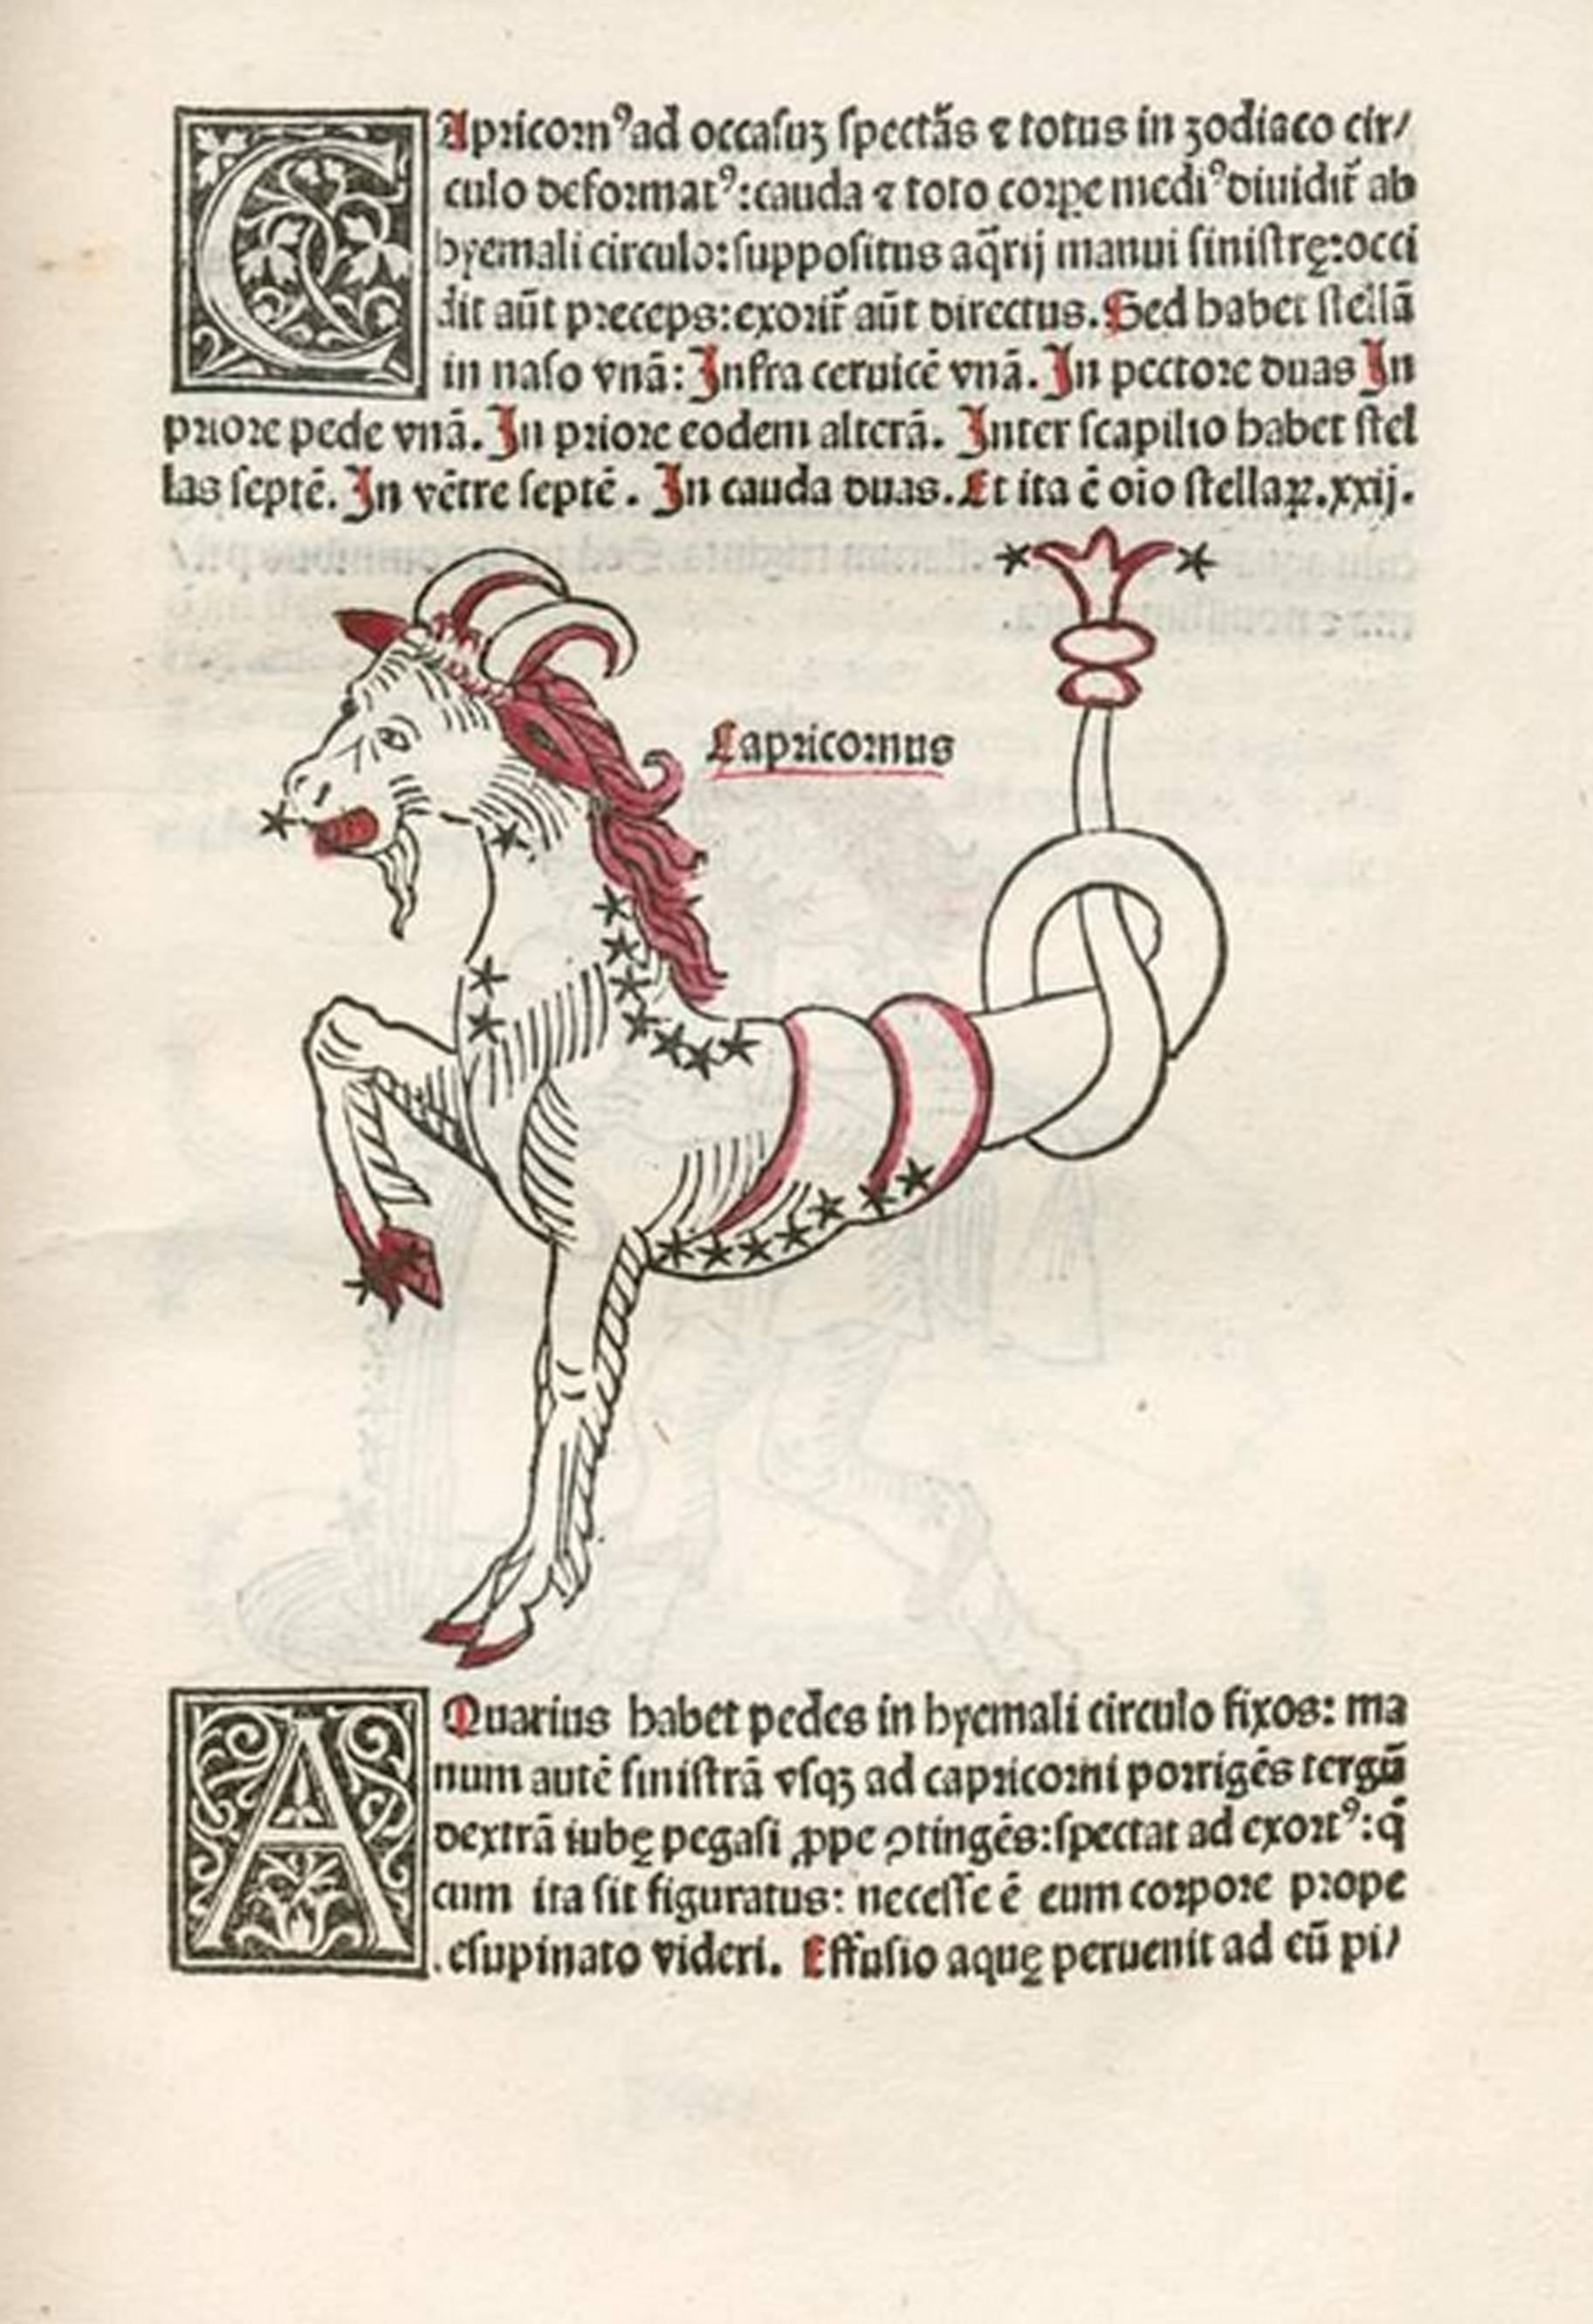 CApricornꝰ ad occaſuꝫ ſpectãs ⁊ totus in zodiaco cir/
culo deformatꝰ: cauda ⁊ toto corpe mediꝰ diuidit̃ ab
hyemali circulo: ſuppoſitus aq̃rij manui ſiniſtrę: occi
dit aũt preceps: exorit̃ aũt directus. Sed habet ſtellã
in naſo vnã: Infra ceruicẽ vnã. In pectore duas In
priore pede vnã. In priore eodem alterã. Inter ſcapilio habet ſtel
las ſeptẽ. In vẽtre ſeptẽ. In cauda duas. Et ita ẽ oĩo ſtellaꝝ. xxij.
Capricornus
AQuarius habet pedes in hyemali circulo fixos: ma
num autẽ ſiniſtrã vſqꝫ ad capricorni porrigẽs tergũ
dextrã iubę pegaſi ꝓpe ꝯtingẽs: ſpectat ad exortꝰ: q̃
cum ita ſit figuratus: neceſſe ẽ eum corpore prope
eſupinato videri. Effuſio aquę peruenit ad eũ pi/